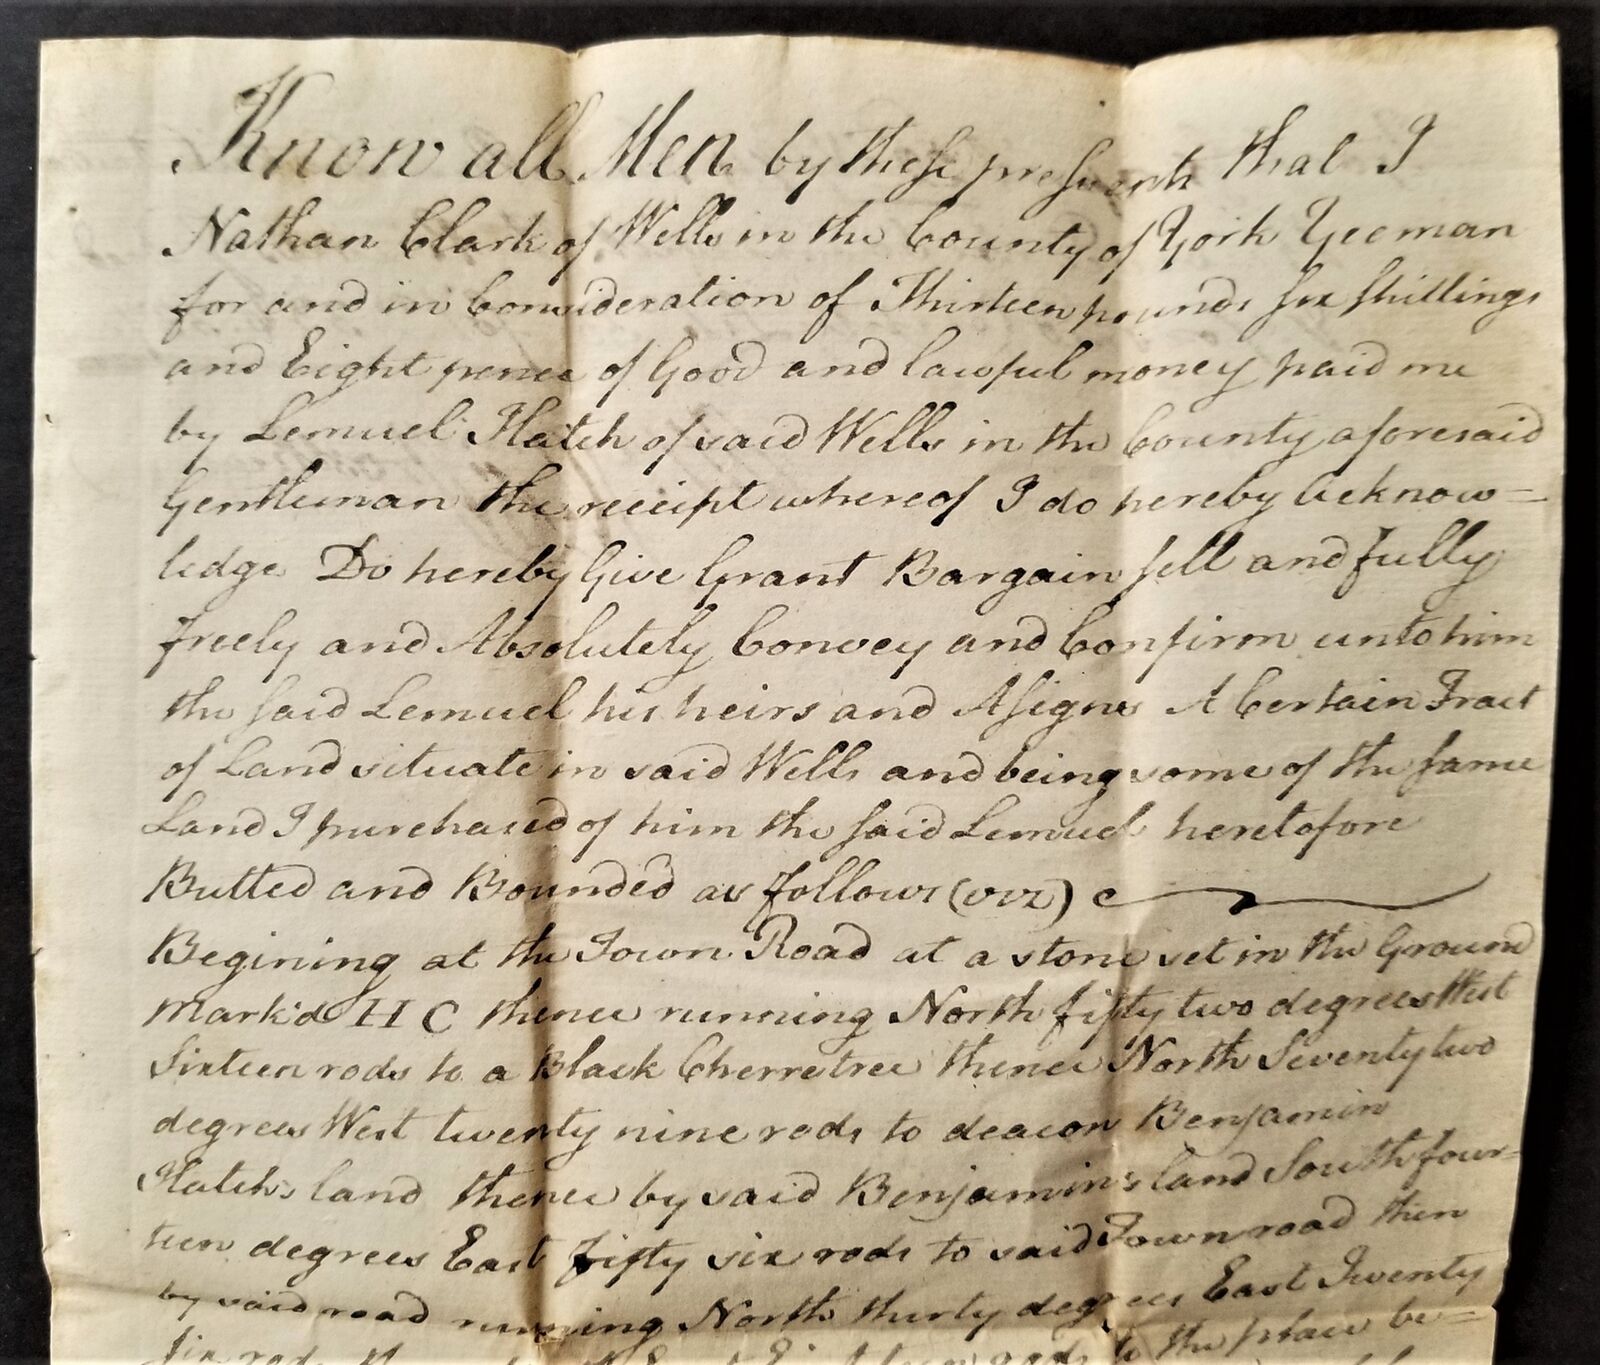 Know all Men by these presents that I
Nathan Clark of Wells in the County of York Yeoman
for and in Consideration of Thirteen pounds six shillings
and Eight pence of Good and lawful money paid me
by Lemuel Hatch of said Wells in the County aforesaid
Gentleman the receipt whereof I do hereby Acknow=
ledge Do hereby Give Grant Bargain sell and fully
freely and Absolutely Convey and Confirm unto him
the said Lemuel his heirs and Asigns A Certain Tract
of Land situate in said Wells and being some of the same
Land I purchased of him the said Lemuel heretofore
Butted and Bounded as follows (viz)
Begining at the Town Road at a stone set in the Ground
Mark'd H C thence running North fifty two degrees West
Sixteen rods to a Black Cherretree thence North Seventy two
degrees West twenty nine rods to deacon Benjamin
Hatch's land thence by said Benjamin's land South four=
teen degrees East fifty six rods to said Town road then
by said road running North thirty degrees East Twenty
Six rods to the place be=